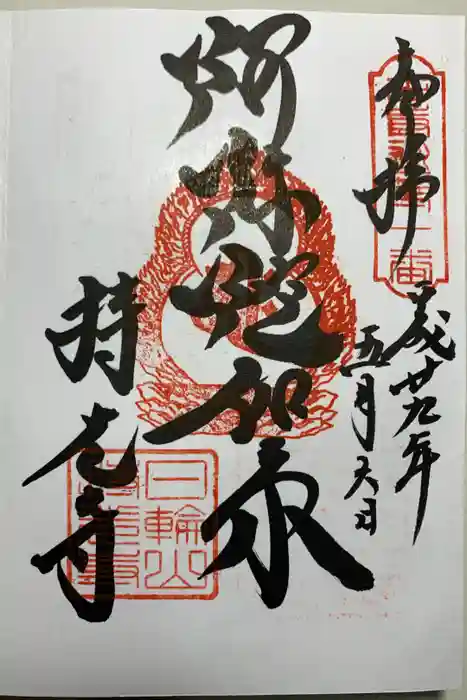 奉拝
平成廿九年
五月六日
阿弥陀如来
持光寺
日輪山